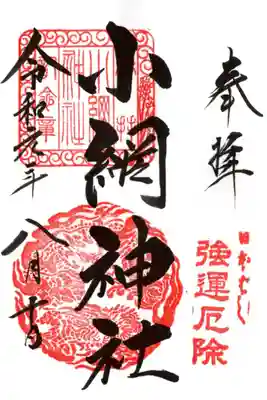 奉拝
日本橋
強運厄除
小網神社
令和元年
八月十日